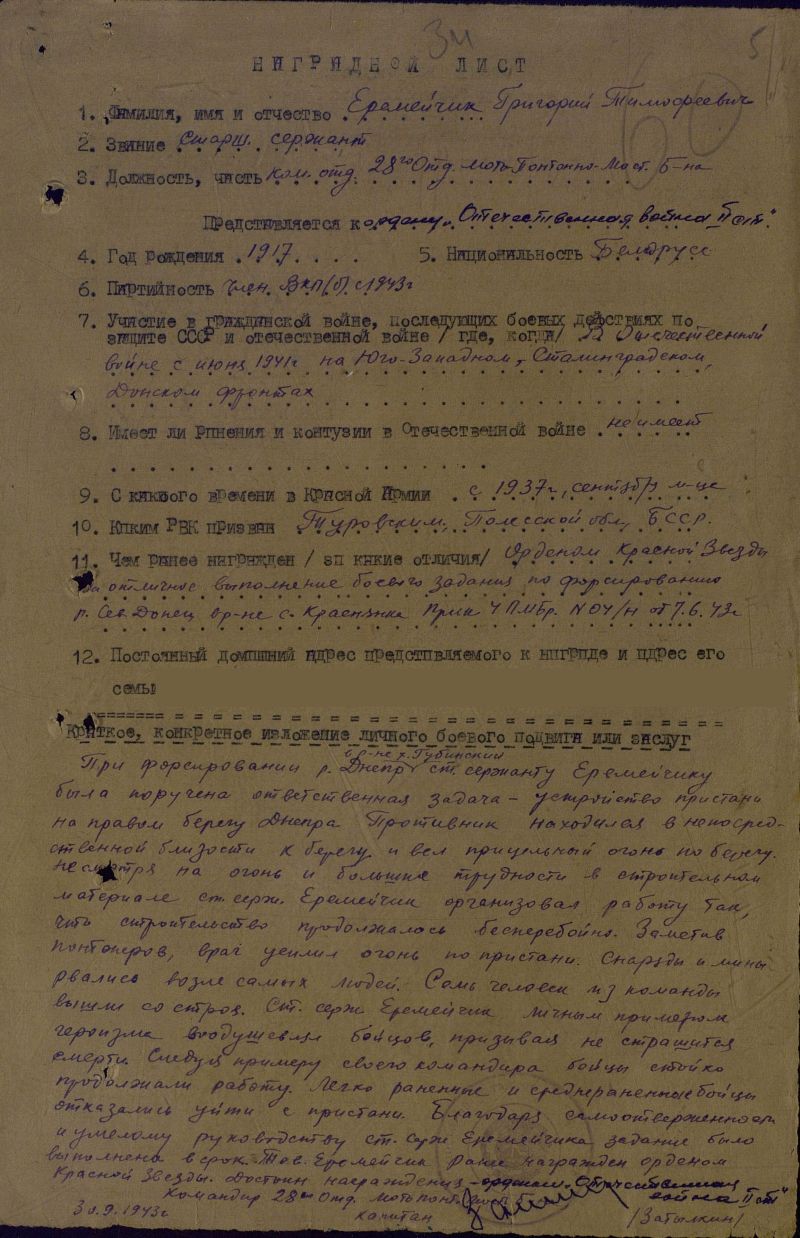 34
5
60
НАГРАДНОЙ ЛИСТ
1. Фамилия, имя и отчество Еремейчик Григорий Тимофеевич
2. Звание Старш. сержант
3. Должность, часть Ком. отд. 28го Отд. мото-Понтонно-Мост. Б-на
Представляется к ордену „Отечественная война II ст."
4. Год рождения 1917 5. Национальность Белорусс
6. Партийность член ВКП(б) с 1943г
7. Участие в гражданской войне, последующих боевых действиях по
защите СССР и отечественной войне / где, когда/ В Отечественной
войне с июня 1941г на Юго-Западном, Сталинградском,
Донском фронтах
8. Имеет ли ранения и контузии в Отечественной войне не имеет
9. С какого времени в Красной Армии с 1937г, сентябрь м-це
10. Каким РВК призван Туровским, Полесской обл, БССР.
11. Чем ранее награжден / за какие отличия/ Орденом Красной Звезды
За отличное выполнение боевого задания по форсированию
р. Сев. Донец в р-не с. Краснянка Прик 4 ПМБр. N 04/н от 7.6.43г
12. Постоянный домашний адрес представляемого к награде и адрес его
семьи
Краткое, конкретное изложение личного боевого подвига или заслуг
в р-не х. Губинский
При форсировании р. Днепр ст. сержанту Еремейчику
была поручена ответственная задача – устройство пристани
на правом берегу Днепра Противник находился в непосред-
ственной близости к берегу и вел прицельный огонь по берегу.
Несмотря на огонь и большие трудности в строительном
материале ст. серж. Еремейчик организовал работу так,
что строительство продолжалось бесперебойно. Заметив
понтонеров, враг усилил огонь по пристани. Снаряды и мины
рвались возле самых людей. Семь человек из команды
вышли со строя. Ст. серж Еремейчик личным примером
героизма воодушевлял бойцов, призывая не страшится
смерти. Следуя примеру своего командира бойцы стойко
продолжали работу. Легко раненные и среднераненные бойцы
отказались уйти с пристани. Благодаря самоотверженности
и умелому руководству ст. серж Еремейчика задание было
выполнено в срок. Тов. Еремейчик ранее награжден орденом
Красной Звезды. Достоин награждения – орденом „Отечественная
война II ст"
Командир 28го Отд. мото понт. мост. Б-на
30.9.1943г капитан /Затылкин/